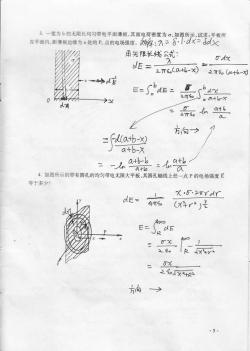 3. 一宽为b的无限长均匀带电平面薄板，其面电荷密度为σ，如图所示，试求：平板所
在平面内，距薄板边缘为a处的P点的电场强度。 λ = δ·1·dx = δdx
用无限长线公式：
dE = λ / 2πε₀(a+b-x) = σdx / 2πε₀(a+b-x)
E = ∫₀ᵇ dE = σ / 2πε₀ ∫₀ᵇ dx / a+b-x
= σ / 2πε₀ ln a+b / a
方向 →
= ∫ d(a+b-x) / a+b-x
4. 如图所示的带有圆孔的均匀带电无限大平板，其圆孔轴线上任一点P的电场强度E
等于多少?
dE = 1 / 4πε₀ x·σ·2πr dr / (x²+r²)^3/2
E = ∫_R^∞ dE
= σx / 2ε₀√x²+R²
方向 →
- 3 -